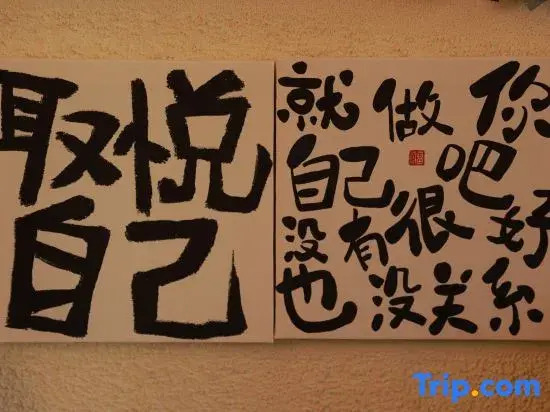 取悦
自己
就做你
自己吧
没有很好
也没关系
Trip.com